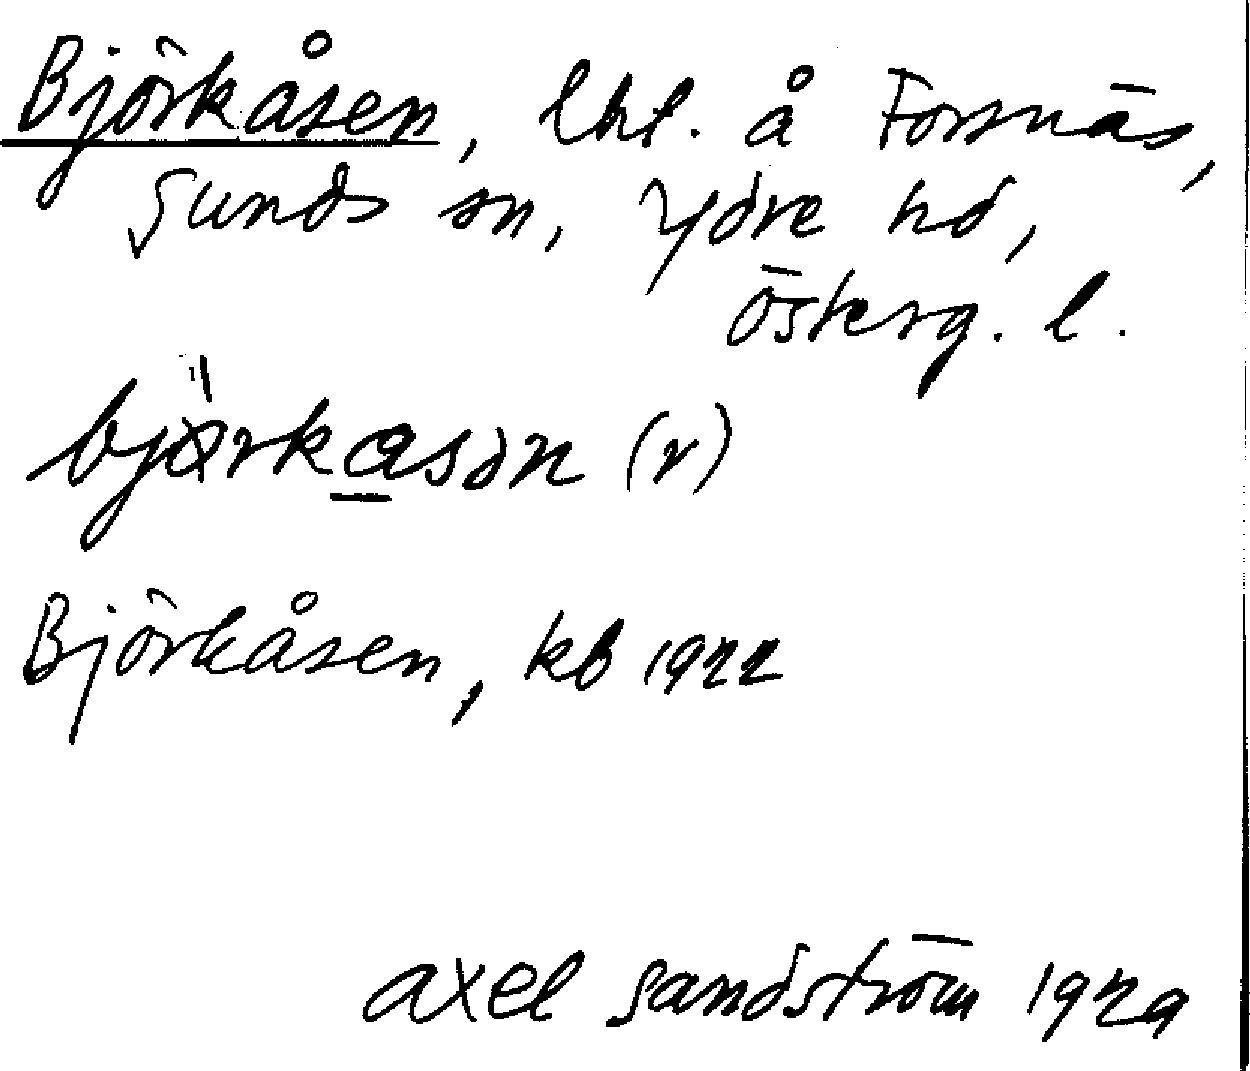 Björkåsen, lht. å Forsnäs,
Sunds sn, Ydre hd,
Österg. l.
björkasən (r)
Björkåsen, kb 1922
Axel Sandström 1929